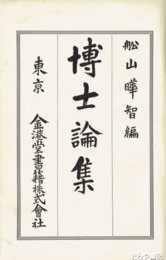 船山曄智編
博士論集
東京
金港堂書籍株式會社